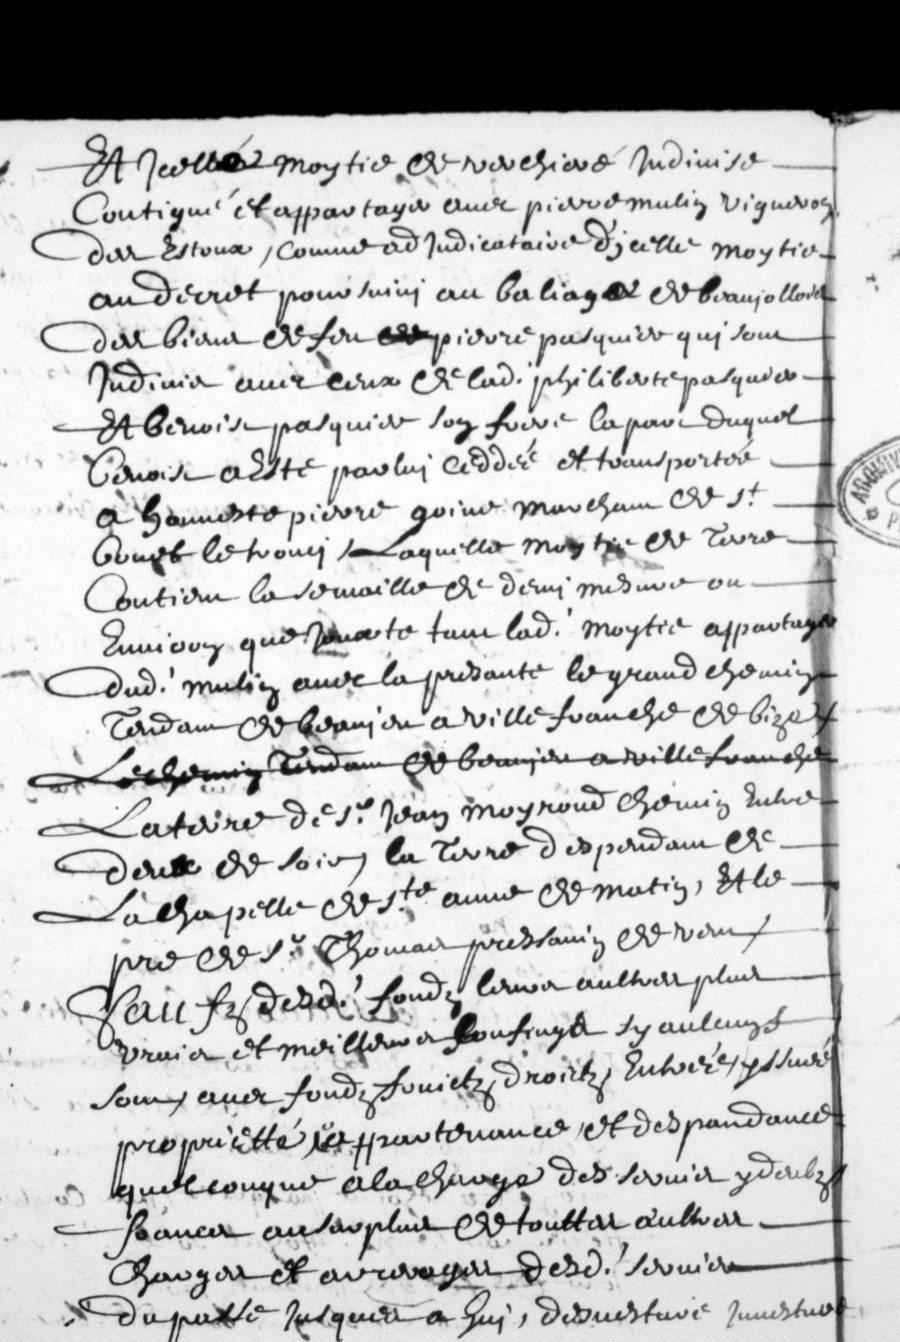 Et Icelle moytie de verchiere Indivise
Contigue et appartager avec pierre mulin vigneron
des Estoux, comme adJudicataire d'jcelle moytie
au decret poursuivi au baliage de beaujollois
des biens de feu pierre pasquier qui sont
Indivis avec ceux de lad. philiberte pasquier
Et benoist pasquier son frere la part duquel
benoist a Esté par lui ceddée et transportée
a honneste pierre marchant de st
bonet le troncy, Laquelle moytie de Terre
Contient la semaille de demi mesure ou
Environ que Jouxte tant lad. moytie appartager
dud. mulin avec la presante le grand chemin
Tendant de beaujeu a villefranche de bize
Le chemin Tendant de beaujeu a villefranche
La terre de sr Jean moyroud chemin Entre
deux de soir, la Terre despendant de
La chapelle de ste anne de matin, Et le
pré de sr Thomas pressavin de vent
Sauf desd. fondz leurs aultres plus
vrais et meilleurs Confins sy aulcuns
sont, avec fondz droictz, Entrée, yssue
proprietté, appartenance, et despandance
quelconque a la charge des servis y deubz
francs au surplus de touttes aultres
charges et arrerages desd. servis
du passé Jusques a huj, desvesture Investure
ARCHIV